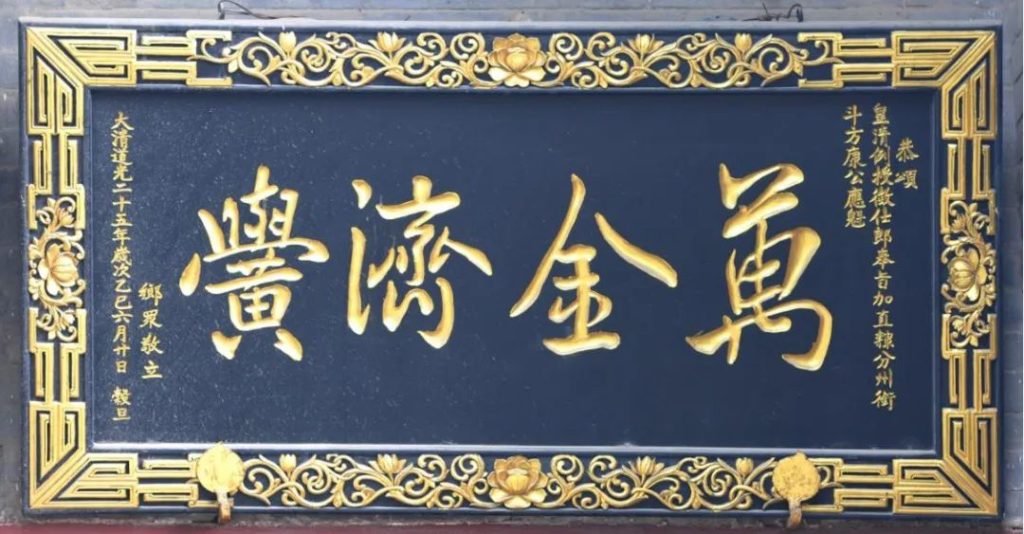 恭頌
皇清例授徵仕郎奉旨加直隸分州銜
斗方康公應魁
萬金濟黌
鄉眾敬立
大清道光二十五年歲次乙巳六月廿日 穀旦